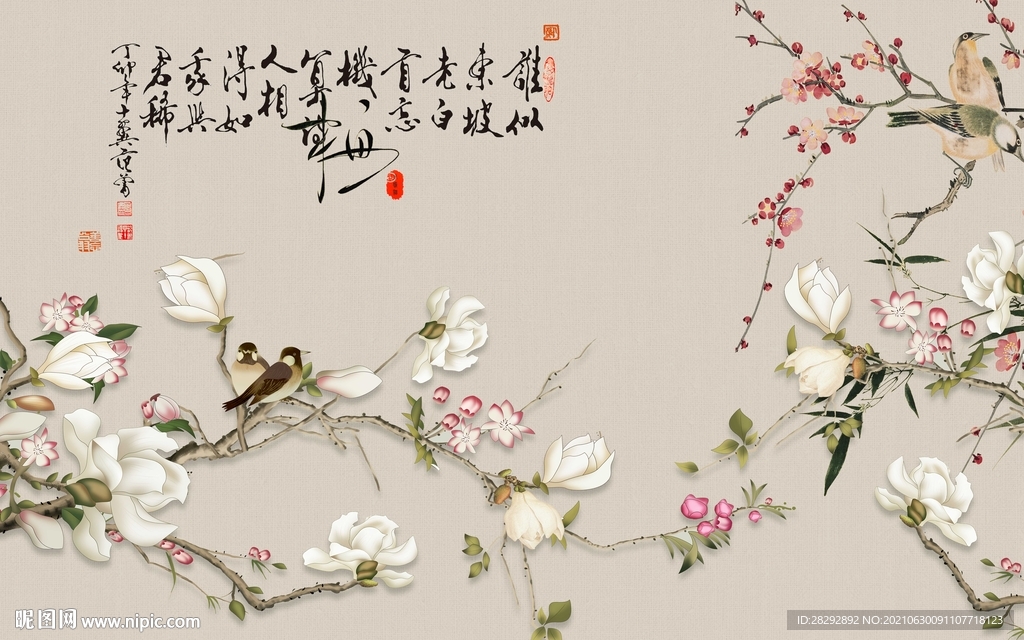 誰似
東坡
老白
首忘
機
算
人相
得如
我與
君稀
丁卯年十翼范曾
昵图网 www.nipic.com
ID:28292892 NO:20210630091107718123